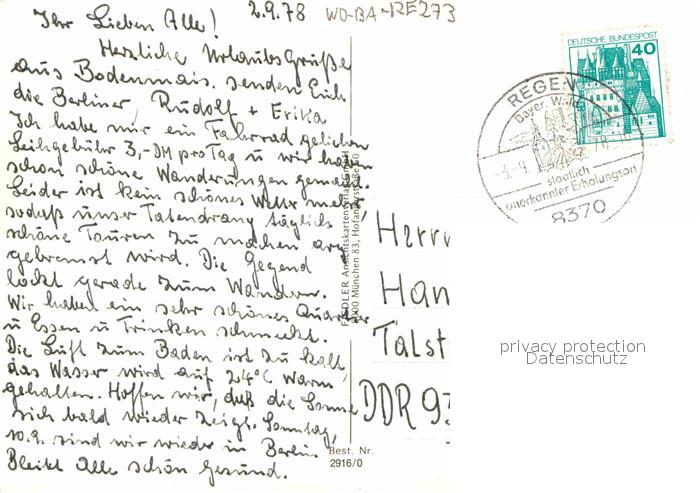 2.9.78
WO-BA-RE273
Ihr Lieben Alle!
Herzliche Urlaubsgrüße
aus Bodenmais. senden Euch
die Berliner, Rudolf + Erika
Ich habe mir ein Fahrrad geliehen
Leihgebühr 3,-DM pro Tag u wir haben
schon schöne Wanderungen gemacht.
Leider ist kein schönes Wetter mehr,
sodaß unser Tatendrang täglich
schöne Touren zu machen arg
gebremst wird. Die Gegend
lockt gerade zum Wandern.
Wir haben ein sehr schönes Quartier
u Essen u Trinken schmeckt.
Die Luft zum Baden ist zu kalt,
das Wasser wird auf 24°C warm
gehalten. Hoffen wir, daß die Sonne
sich bald wieder zeigt. Sonntag,
10.9. sind wir wieder in Berlin.
Bleibt Alle schön gesund.
FIEDLER Ansichtskartenverlag GmbH
8000 München 83, Hofangerstraße
Best. Nr.
2916/0
Herrn
Han
Talst
DDR 93
DEUTSCHE BUNDESPOST
40
REGEN
Bayer. Wald
staatlich
anerkannter Erholungsort
8370
privacy protection
Datenschutz